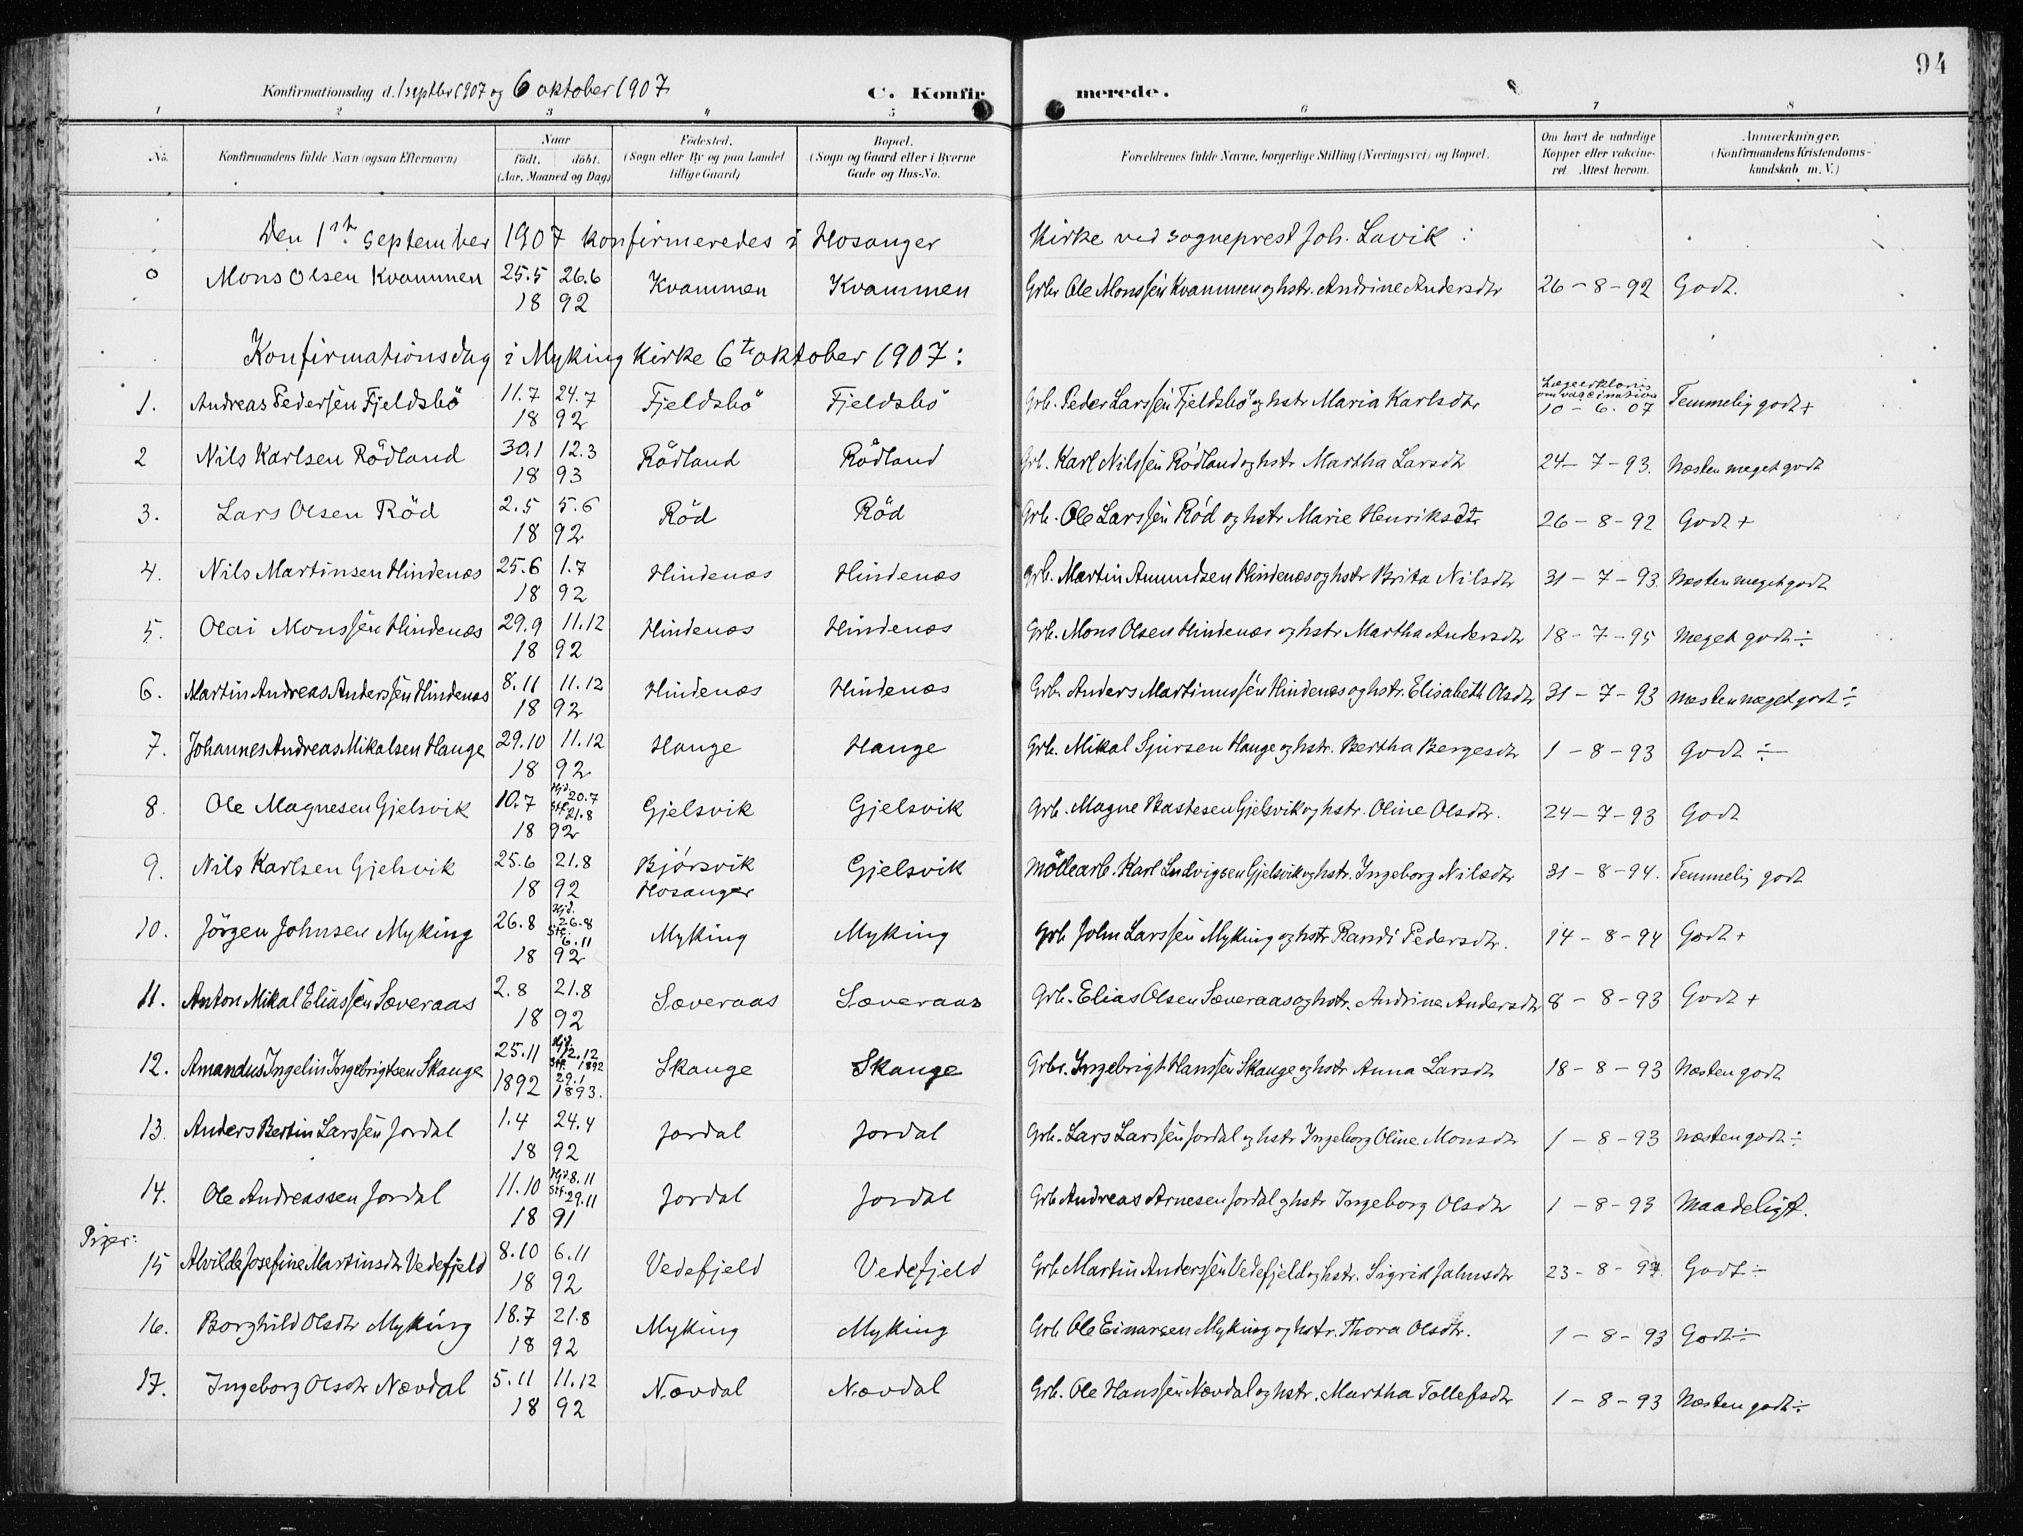 94
Konfirmationsdag d. 1 septbr 1907 og 6 oktober 1907.
C. Konfirmerede.
1 2 3 4 5 6 7 8
No.
Konfirmandens fulde Navn (ogsaa Efternavn)
Naar
født. døbt.
(Aar, Maaned og Dag)
Fødested.
(Sogn eller By og paa Landet
tillige Gaard)
Bopæl.
(Sogn og Gaard eller i Byerne
Gade og Hus-No.
Forældrenes fulde Navne, borgerlige Stilling (Næringsvei) og Bopæl.
Om havt de naturlige
Kopper eller vakcine-
ret. Attest herom.
Anmærkninger.
(Konfirmandens Kristendoms-
kundskab m. V.)
Den 1ste september 1907 konfirmeredes i Hosanger Kirke ved sogneprest Joh. Lavik :
0 Mons Olsen Kvammen 25.5 26.6 Kvammen Kvammen Grbr Ole Monssen Kvammen og hstr. Andrine Andersdtr 26-8-92 Godt.
18 92
Konfirmationsdag i Myking Kirke 6te oktober 1907:
1. Andreas Pederssen Fjeldsbö 11.7 24.7 Fjeldsbö Fjeldsbö Grb. Peder Larssen Fjeldsbö og hstr Maria Karlsdtr Lægeerklæring om vaccination 10-6.07 Temmelig godt +
18 92
2 Nils Karlsen Rödland 30.1 12.3 Rödland Rödland Grb. Karl Nilssen Rödland og hstr Martha Larsdtr 24-7-93. Næsten meget godt
18 93
3. Lars Olsen Röd 2.5 5.6 Röd Röd Grb. Ole Larssen Röd og hstr Marie Henriksdtr 26-8-92 Godt +
18 92
4. Nils Martinsen Hindenæs 25.6 1.7 Hindenæs Hindenæs Grb. Martin Amundsen Hindenæs og hstr Brita Nilsdtr 31-7-93. Næsten meget godt
18 92
5. Olai Monssen Hindenæs 29.9 11.12 Hindenæs Hindenæs Grb. Mons Olsen Hindenæs og hstr Martha Andersdtr 18-7-95 Meget godt ÷
18 92
6. Martin Andreas Anderssen Hindenæs 8.11 11.12 Hindenæs Hindenæs Grb. Anders Martinussen Hindenæs og hstr. Elisabeth Olsdtr 31-7-93 Næsten meget godt ÷
18 92
7. Johannes Andreas Mikalsen Hauge 29.10 11.12 Hauge Hauge Grb. Mikal Sjursen Hauge og hstr. Bertha Bergesdtr 1-8-93 Godt ÷
18 92
8. Ole Magnesen Gjelsvik 10.7 Hjd. 20.7 Stf. 21.8 Gjelsvik Gjelsvik Grb. Magne Bastesen Gjelsvik og hstr. Oline Olsdtr. 24-7-93 Godt
18 92
9. Nils Karlsen Gjelsvik 25.6 21.8 Bjørsvik Gjelsvik Möllearb. Karl Ludvigsen Gjelsvik og hstr. Ingeborg Nilsdtr 31-8-94. Temmelig godt
18 92 Hosanger
10. Jörgen Johnsen Myking 26.8 Hjd. 26.8 Stf. 6.11 Myking Myking Grb John Larssen Myking og hstr Randi Pedersdtr. 14-8-94 Godt +
18 92
11. Anton Mikal Eliassen Sæveraas 2.8 21.8 Sæveraas Sæveraas Grb. Elias Olsen Sæveraas og hstr. Andrine Andersdtr 8-8-93 Godt +
18 92
12. Amandus Ingelin Ingebrigtsen Skauge 25.11 Hjd. 12.12 1892 Stf. Skauge Skauge Grbr. Ingebrigt Hanssen Skauge og hstr Anna Larsdtr 18-8-93 Næsten godt
1892 29.1 1893.
13. Anders Bertin Larssen Jordal 1.4 24.4 Jordal Jordal Grb. Lars Larssen Jordal og hstr Ingeborg Oline Monsdtr 1-8-93 Næsten godt ÷
18 92
14. Ole Andreassen Jordal 11.10 Hjd 8.11 Stf. 29.11 Jordal Jordal Grb Andreas Arnesen Jordal og hstr Ingeborg Olsdtr 1-8-93 Maadeligt.
18 91
Piger:
15 Alvilde Josefine Martinsdtr Vedefjeld 8.10 6.11 Vedefjeld Vedefjeld Grb. Martin Anderssen Vedefjeld og hstr. Sigrid Johnsdtr 23-8-94 Godt ÷
18 92
16. Borghild Olsdtr Myking 18.7 21.8 Myking Myking Grb Ole Einarsen Myking og hstr. Thora Olsdtr. 1-8-93 Godt ÷
18 92
17. Ingeborg Olsdtr Nævdal 5.11 11.12 Nævdal Nævdal Grb. Ole Hanssen Nævdal og hstr. Martha Tollefsdtr 1-8-93 Næsten godt ÷
18 92